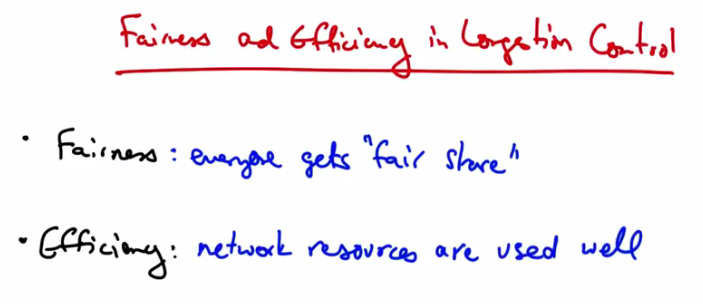 Fairness and Efficiency in Congestion Control
• Fairness: everyone gets "fair share"
• Efficiency: network resources are used well